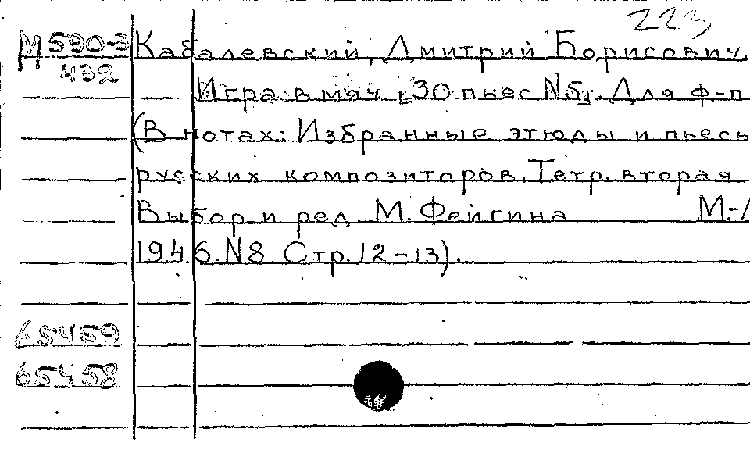 223
М 590-3 Кабалевский, Дмитрий Борисович.
432
Игра в мяч [30 пьес N5]. Для ф-п
(В нотах: Избранные этюды и пьесы
русских композиторов. Тетр. вторая
Выбор и ред. М. Фейгина М-Л
1946. N8 Стр. 12-13).
65459
65458